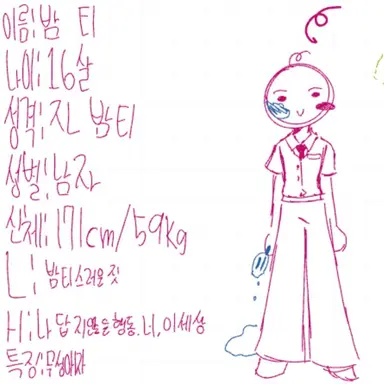 이름: 밤 티
나이: 16살
성격: 지ㄴ 밤티
성별: 남자
신체: 171cm/59kg
L: 밤티스러운 짓
H: 나 답지 않은 행동. 너, 이세상
특징: 무성애자